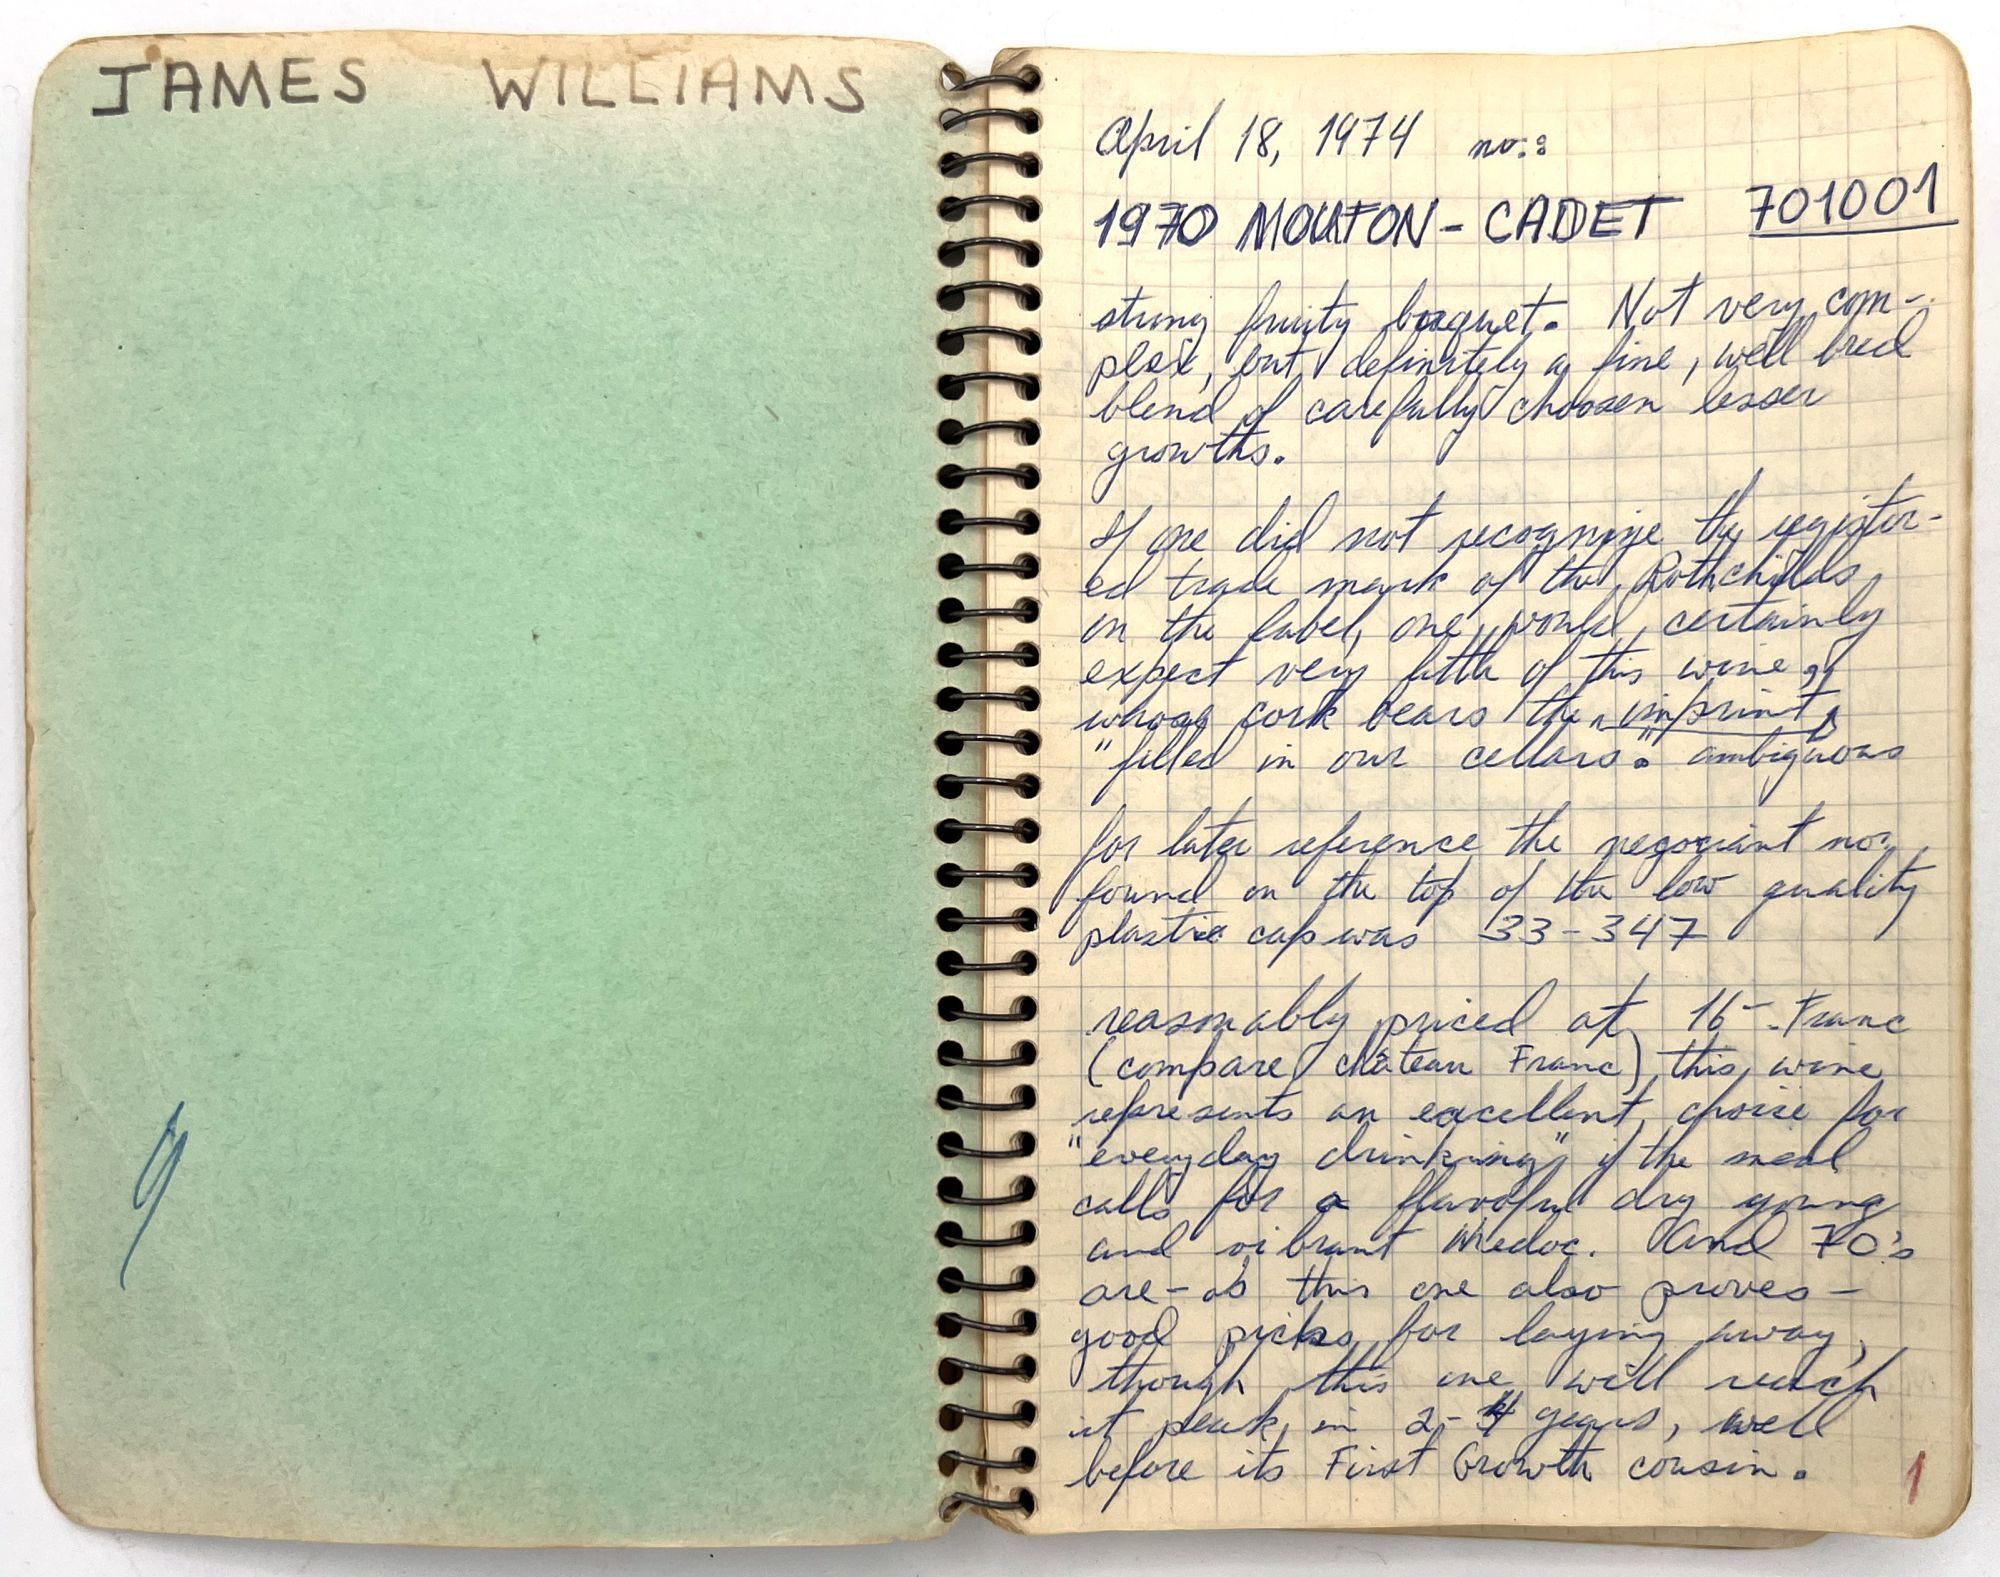 JAMES WILLIAMS
9
April 18, 1974 no.:
1970 MOUTON-CADET 701001
strong fruity boquet. Not very com-
plex, but definitely a fine, well bred
blend of carefully choosen lesser
growths.
If one did not recognize the register-
ed trade mark of the Rothchilds
on the label, one would certainly
expect very little of this wine
whose cork bears the imprint
"filled in our cellars." ambiguous
for later reference the negociant no.
found on the top of the low quality
plastic cap was 33-347
reasonably priced at 16- Franc
(compare château Franc) this wine
represents an excellent choice for
"everyday drinking" if the meal
calls for a flavorful dry young
and vibrant Medoc. And 70's
are-as this one also proves-
good picks for laying away,
though this one will reach
it peak in 2-4 years, well
before its First Growth cousin.
1